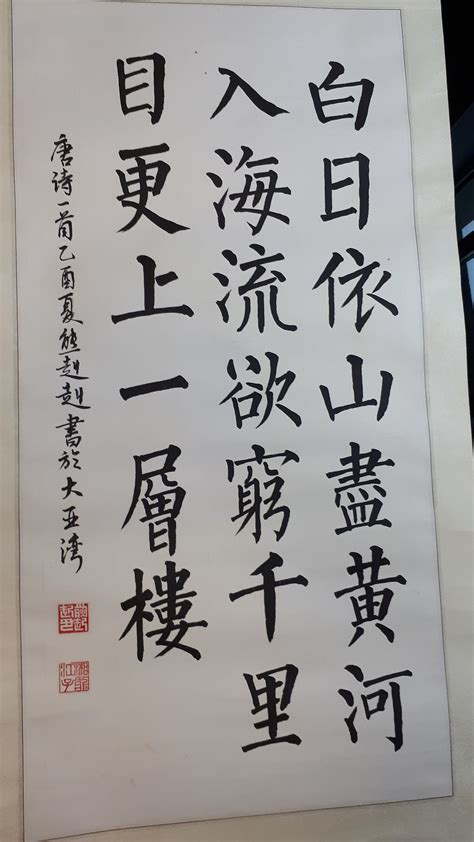 白日依山盡黄河
入海流欲窮千里
目更上一層樓
唐诗一首乙酉夏熊赳赳書於大亚湾